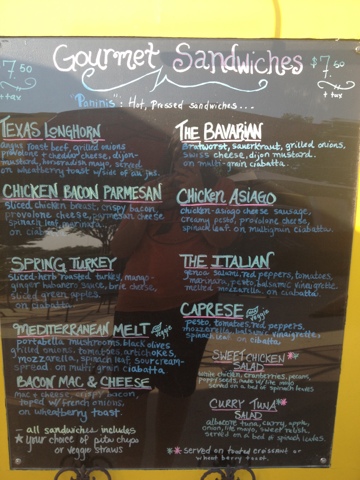 Gourmet Sandwiches
$7.50 + tax
$7.50 + tax
"Paninis": Hot, Pressed sandwiches...
TEXAS LONGHORN
angus roast beef, grilled onions
provolone + cheddar cheese, dijon-
mustard, horseradish mayo, served
on wheatberry toast w/side of au jus.
CHICKEN BACON PARMESAN
sliced chicken breast, crispy bacon
provolone cheese, parmesan cheese
spinach leaf, marinara
on ciabatta
SPRING TURKEY
sliced herb roasted turkey, mango-
ginger habanero sauce, brie cheese,
sliced green apples,
on ciabatta
MEDITERRANEAN MELT veggie
portabella mushrooms, black olives
grilled onions, tomatoes, artichokes,
mozzarella, spinach leaf, sourcream-
spread, on multi grain ciabatta
BACON MAC & CHEESE
mac & cheese, crispy bacon,
topped w/french onions,
on wheatberry toast.
- all sandwiches includes
* your choice of pita chips
or veggie straws
THE BAVARIAN
Bratworst, sauerkraut, grilled onions,
swiss cheese, dijon mustard.
on multi-grain ciabatta.
Chicken Asiago
chicken-asiago cheese sausage,
creamy pesto, provolone cheese,
spinach leaf on multigrain ciabatta.
THE ITALIAN
genoa salami, red peppers, tomatoes,
marinara, pesto, balsamic vinaigrette,
melted mozzarella on ciabatta.
CAPRESE veggie
pesto, tomatoes, red peppers,
mozzarella, balsamic vinaigrette,
spinach leaf on ciabatta.
SWEET CHICKEN *
SALAD
white chicken, cranberries, pecans,
poppy seeds, made w/ lite mayo
served on a bed of spinach leaves
CURRY TUNA *
SALAD
albacore tuna, curry, apple,
onion, lite mayo, sweet relish.
served on a bed of spinach leaves.
* served on toasted croissant or
wheat berry toast.